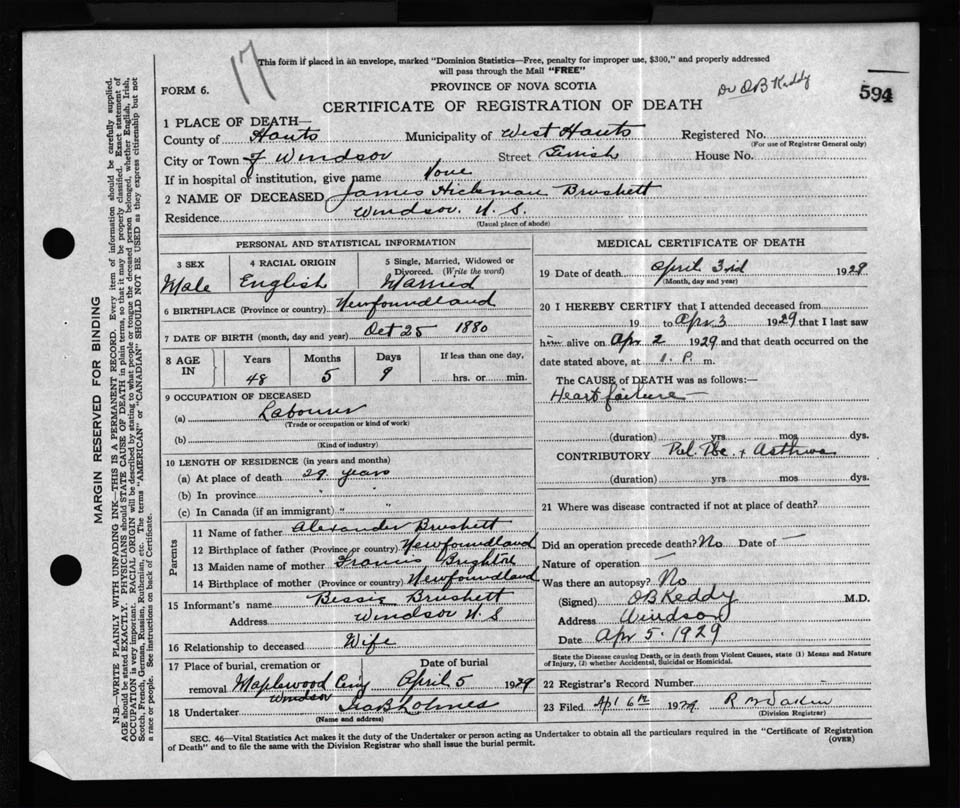 17
This form if placed in an envelope, marked "Dominion Statistics—Free, penalty for improper use, $300," and properly addressed
will pass through the Mail "FREE"
FORM 6.
PROVINCE OF NOVA SCOTIA
Dr OB Keddy
594
CERTIFICATE OF REGISTRATION OF DEATH
1 PLACE OF DEATH—
County of Hants Municipality of West Hants Registered No.
(For use of Registrar General only)
City or Town of Windsor Street House No.
If in hospital or institution, give name None
2 NAME OF DECEASED James Hickman Brushett
Residence Windsor. N. S.
(Usual place of abode)
PERSONAL AND STATISTICAL INFORMATION
3 SEX
Male
4 RACIAL ORIGIN
English
5 Single, Married, Widowed or
Divorced. (Write the word)
Married
6 BIRTHPLACE (Province or country) Newfoundland
7 DATE OF BIRTH (month, day and year) Oct 25 1880
8 AGE
IN
Years Months Days If less than one day,
48 5 9 hrs. or min.
9 OCCUPATION OF DECEASED
(a) Labourer
(Trade or occupation or kind of work)
(b)
(Kind of industry)
10 LENGTH OF RESIDENCE (in years and months)
(a) At place of death 29 years
(b) In province " "
(c) In Canada (if an immigrant) " "
Parents
11 Name of father Alexander Brushett
12 Birthplace of father (Province or country) Newfoundland
13 Maiden name of mother Francis
14 Birthplace of mother (Province or country) Newfoundland
15 Informant's name Bessie Brushett
Address Windsor N S
16 Relationship to deceased Wife
17 Place of burial, cremation or Date of burial
removal Maplewood Cemy April 5 1929
Windsor
18 Undertaker Ira B Holmes
(Name and address)
MEDICAL CERTIFICATE OF DEATH
19 Date of death April 3rd 1929
(Month, day and year)
20 I HEREBY CERTIFY that I attended deceased from
19 to Apr 3 1929 that I last saw
him alive on Apr 2 1929 and that death occurred on the
date stated above, at 1. P. m.
The CAUSE of DEATH was as follows:—
Heart failure —
(duration) yrs mos dys.
CONTRIBUTORY Pul. Tbc. + Asthma
(duration) yrs mos dys.
21 Where was disease contracted if not at place of death?
Did an operation precede death? No Date of —
Nature of operation —
Was there an autopsy? No
(Signed) OB Keddy M.D.
Address Windsor
Date Apr 5. 1929
State the Disease causing Death, or in death from Violent Causes, state (1) Means and Nature
of Injury, (2) whether Accidental, Suicidal or Homicidal.
22 Registrar's Record Number
23 Filed Apl 6th 1929
(Division Registrar)
SEC. 46—Vital Statistics Act makes it the duty of the Undertaker or person acting as Undertaker to obtain all the particulars required in the "Certificate of Registration
of Death" and to file the same with the Division Registrar who shall issue the burial permit.
(OVER)
MARGIN RESERVED FOR BINDING
N.B.—WRITE PLAINLY WITH UNFADING INK—THIS IS A PERMANENT RECORD. Every item of information should be carefully supplied.
AGE should be stated EXACTLY. PHYSICIANS should STATE CAUSE OF DEATH in plain terms, so that it may be properly classified. Exact statement of
OCCUPATION is very important. RACIAL ORIGIN will be described by stating to what people or tongue the deceased person belonged, whether English, Irish,
Scotch, French, German, Russian, Ruthenian, etc. The terms "AMERICAN" or "CANADIAN" SHOULD NOT BE USED as they express citizenship but not
a race or people. See instructions on back of Certificate.